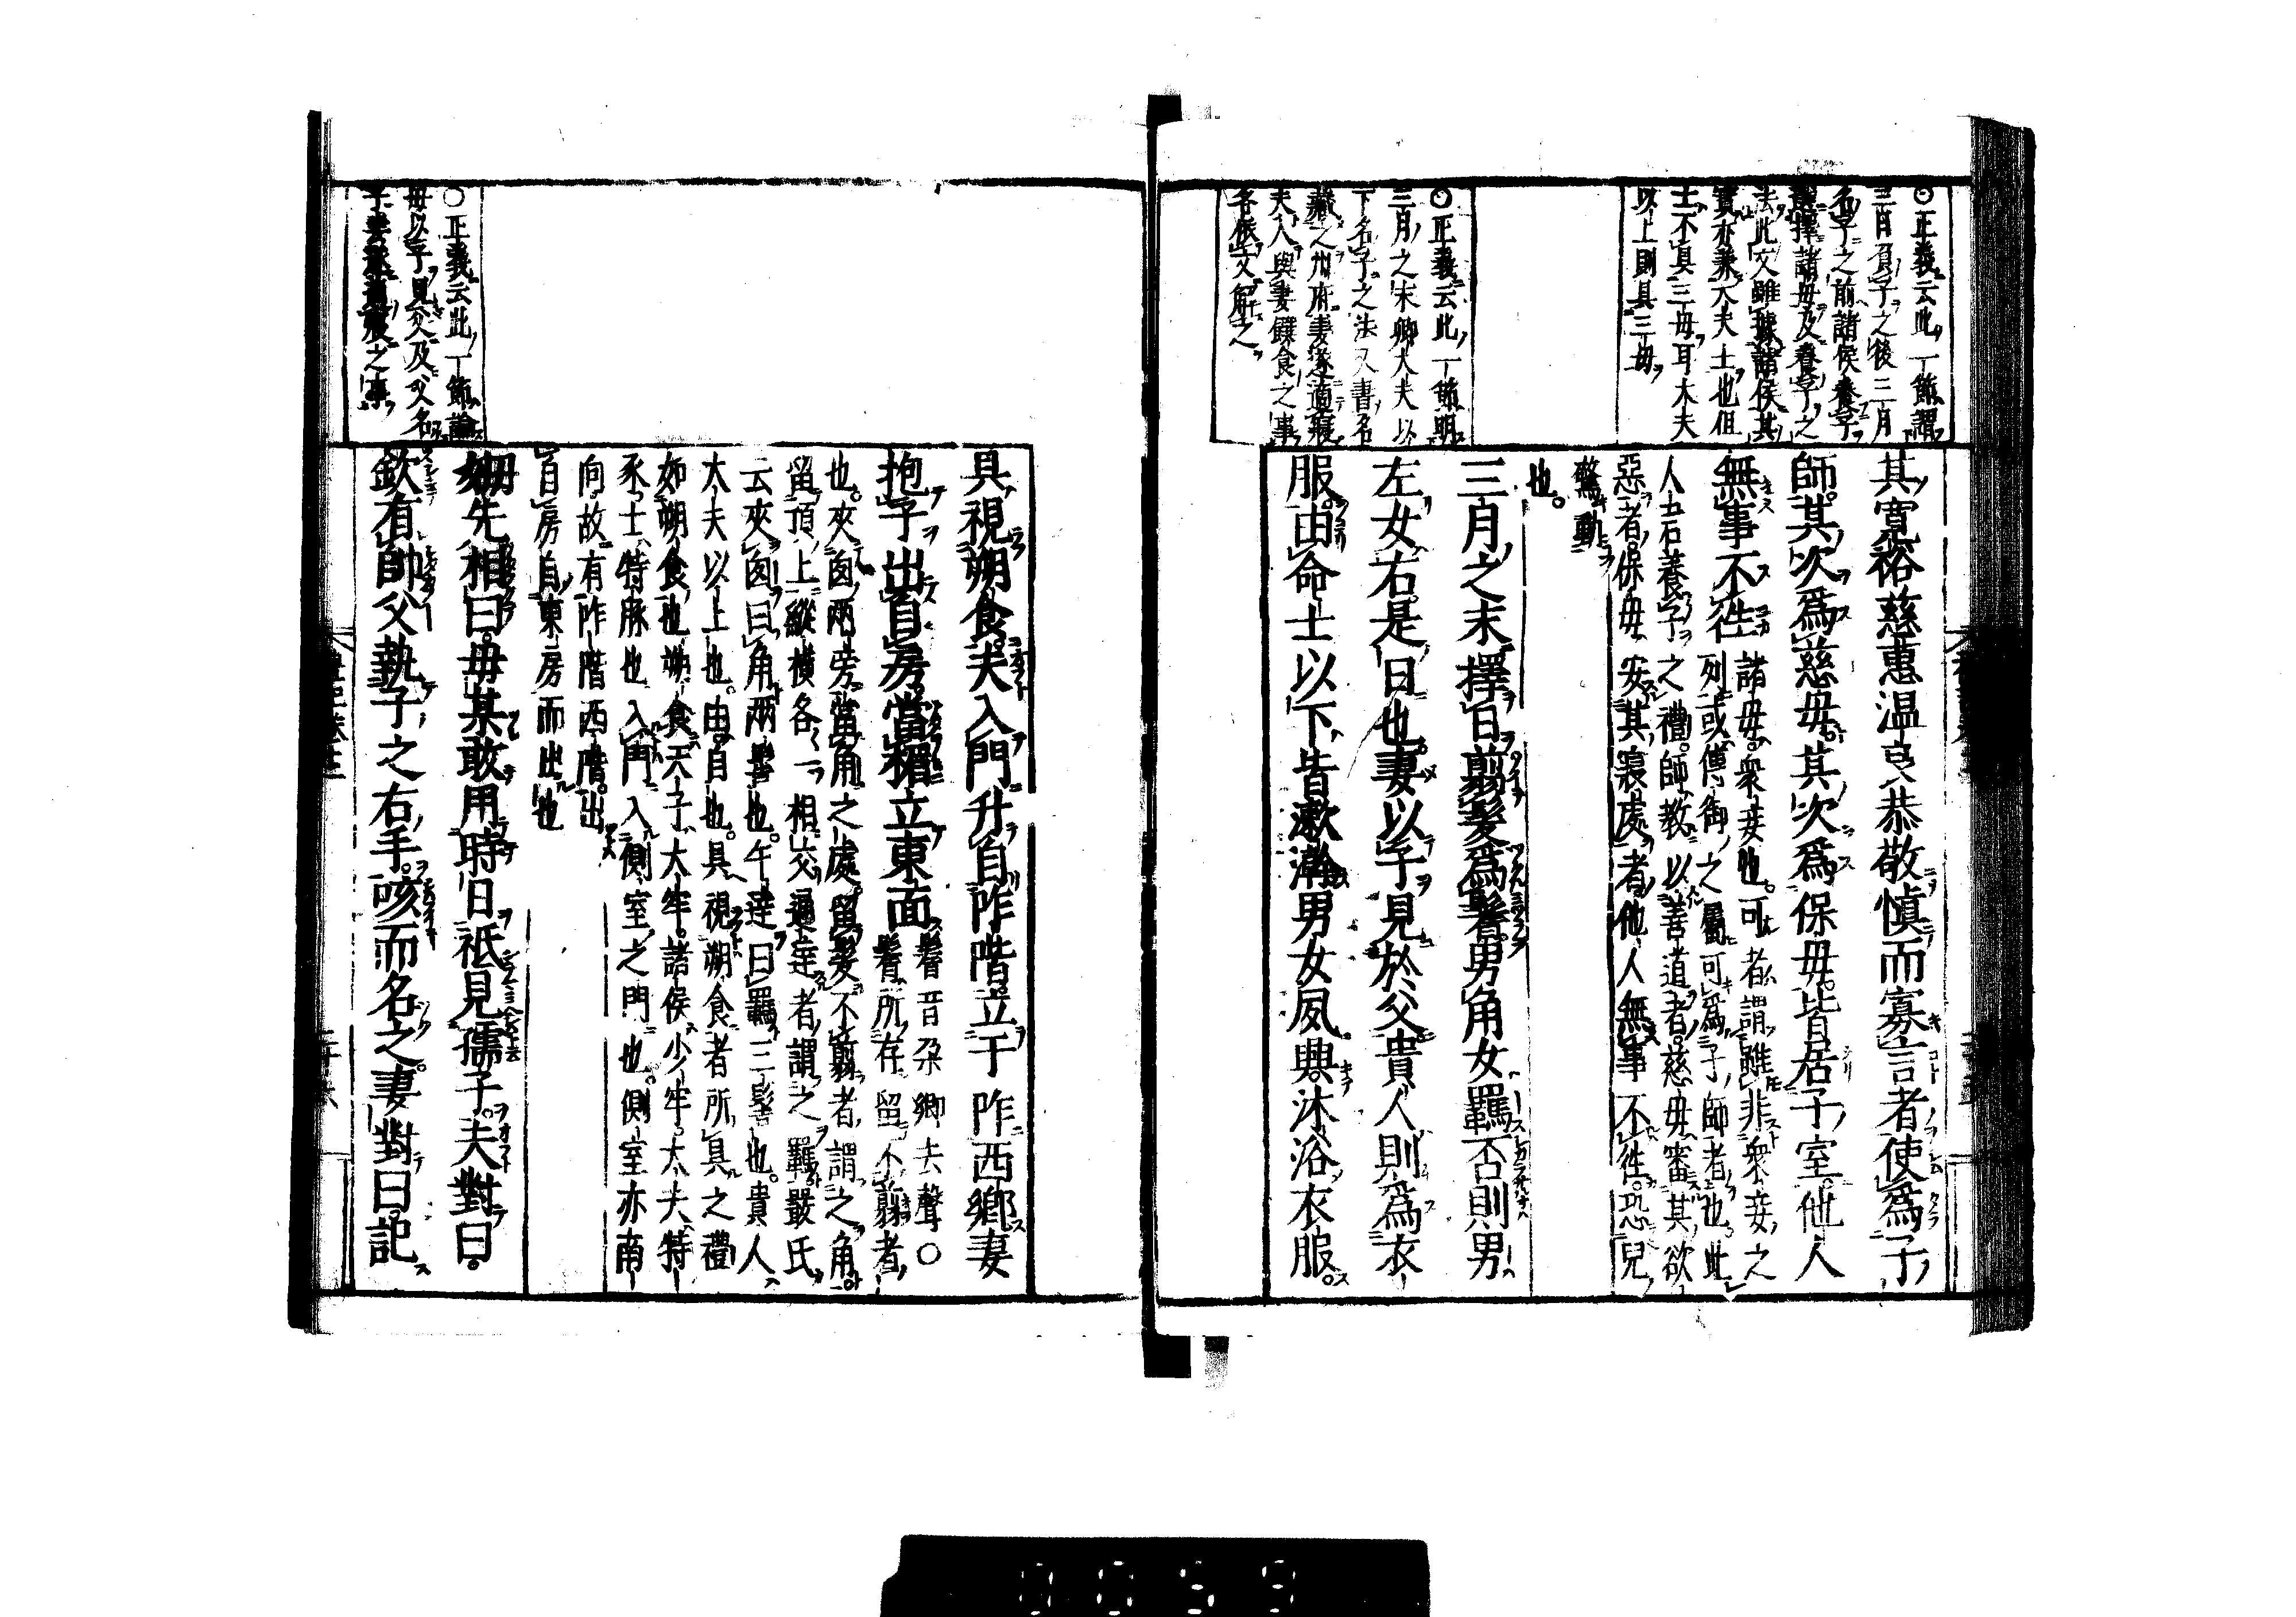 〇正義云此一節謂
三月負子之後三月
名子之前諸侯養子
選擇諸母及養子之
法此文雖據諸侯其
實亦兼大夫士也但
士不具三母耳大夫
以上則具三母
〇正義云此一節明
三月之末卿大夫以
下名子之法又書名
藏之州府妻遂適寢
夫入與妻饌食之事
各依文解之
其寬裕慈惠温良恭敬慎而寡言者使爲子
師其次爲慈母其次爲保母皆居子室他人
無事不徃
諸母衆妾也可者謂雖非衆妾之
列或傅御之屬可爲子師者也此
人君養子之禮師教以善道者慈母審其欲
惡者保母安其寢處者他人無事不徃恐兒
驚動
也
三月之末擇日翦髮爲鬌男角女羈否則男
左女右是日也妻以子見於父貴人則爲衣
服由命士以下皆漱澣男女夙興沐浴衣服
具視朔食夫入門升自阼階立于阼西鄉妻
抱子出自房當楣立東面
鬌音朶卿去聲〇
鬌所存留不翦者
也夾囟兩旁當角之處留髮不翦者謂之角
留頂上縱橫各一相交通達者謂之羈嚴氏
云夾囟曰角兩髻也午達曰羈三髻也貴人
大夫以上也由自也具視朔食者所具之禮
如朔食也朔食天子大牢諸侯少牢大夫特
豕士特豚也入門入側室之門也側室亦南
向故有阼階西階出
自房自東房而出也
姆先相曰母某敢用時日祗見孺子夫對曰
欽有帥父執子之右手咳而名之妻對曰記
〇正義云此一節論
母以子見父及父名
子妻遂適寢之事